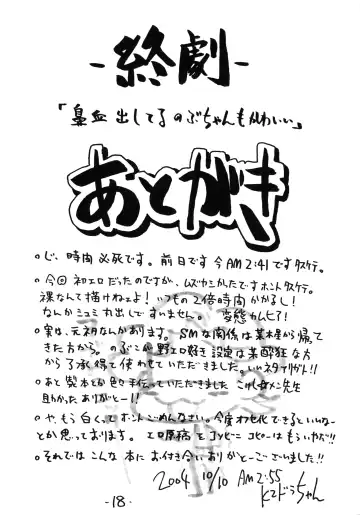 -終劇-
「鼻血出してるのぶちゃんもかわいい」
あとがき
○じ、時間必死です。前日です今AM2:41ですタスケテ。
○今回初エロだったのですが、ムズカシかたですホントタスケテ。
裸なんて描けねェよ!いつもの2倍時間かかるし!
なんかシュミ丸出しですいません。変態カムヒア!
○実は、元ネタなんかあります。SMな関係は某木屋から帰って
きた方から。のぶこが野エロ好き設定は某酔狂な方
から了承得て使わせていただきました。いいネタアリガト!!
○あと製本とか色々手伝っていただきました こげ女メン先生
助かったありがとー!!
○や、もう白くってホントごめんなさい。今度オフセ化できるといいなー
とか思っております。エロ原稿をコンビニコピーはもういやだ!!
○それではこんな本にお付き合いありがとーございました!!
2004 10/10 AM2:55
ドラちゃん
-18-